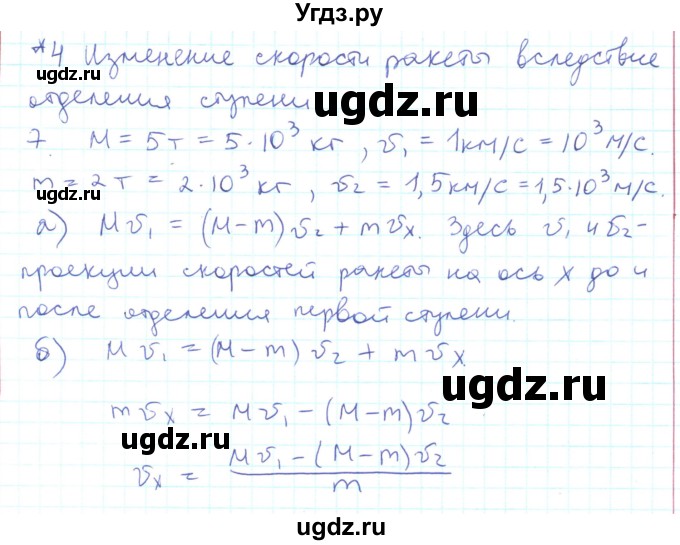 Угдз.ру
*4 Изменение скорости ракеты вследствие
ugdz.ru
отделения ступени
ugdz.ru
7. M = 5т = 5·10³ кг, v₁ = 1км/с = 10³ м/с.
m = 2 т = 2·10³ кг, v₂ = 1,5км/с = 1,5·10³ м/с.
ugdz.ru
а) Mv₁ = (M-m)v₂ + mvₓ. Здесь v₁ и v₂ -
проекции скоростей ракеты на ось X до и
после отделения первой ступени.
б) M v₁ = (M-m) v₂ + m vₓ
ugdz.ru
mvₓ = Mv₁ - (M-m)v₂
ugdz.ru
vₓ = (Mv₁ - (M-m)v₂) / m
ugdz.ru